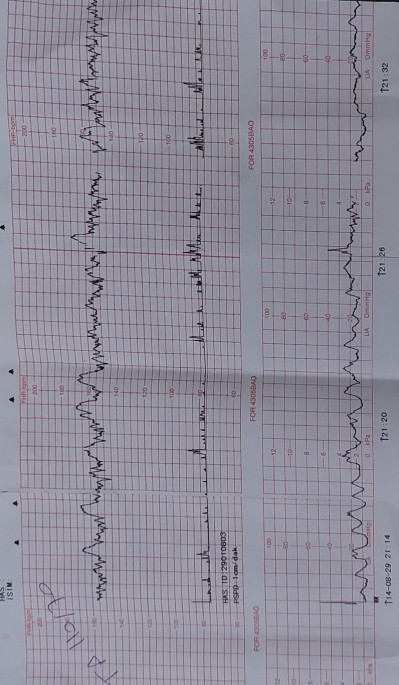 HAS.
ISIM
110/70
FHR-bpm
200
180
160
140
120
100
80
60
FHR-bpm
200
180
160
140
120
100
80
60
FHR-bpm
200
180
160
140
120
100
80
60
HAS. ID:29010803
PSPD 1cm/dak
FOR 4305BAO
FOR 4305BAO
FOR 4305BAO
12
10
8
6
4
2
0 kPa
100
80
60
40
20
0mmHg
UA
12
10
8
6
4
2
0 kPa
100
80
60
40
20
0mmHg
UA
↑14-08-29 21 14
↑21:20
↑21 26
↑21:32